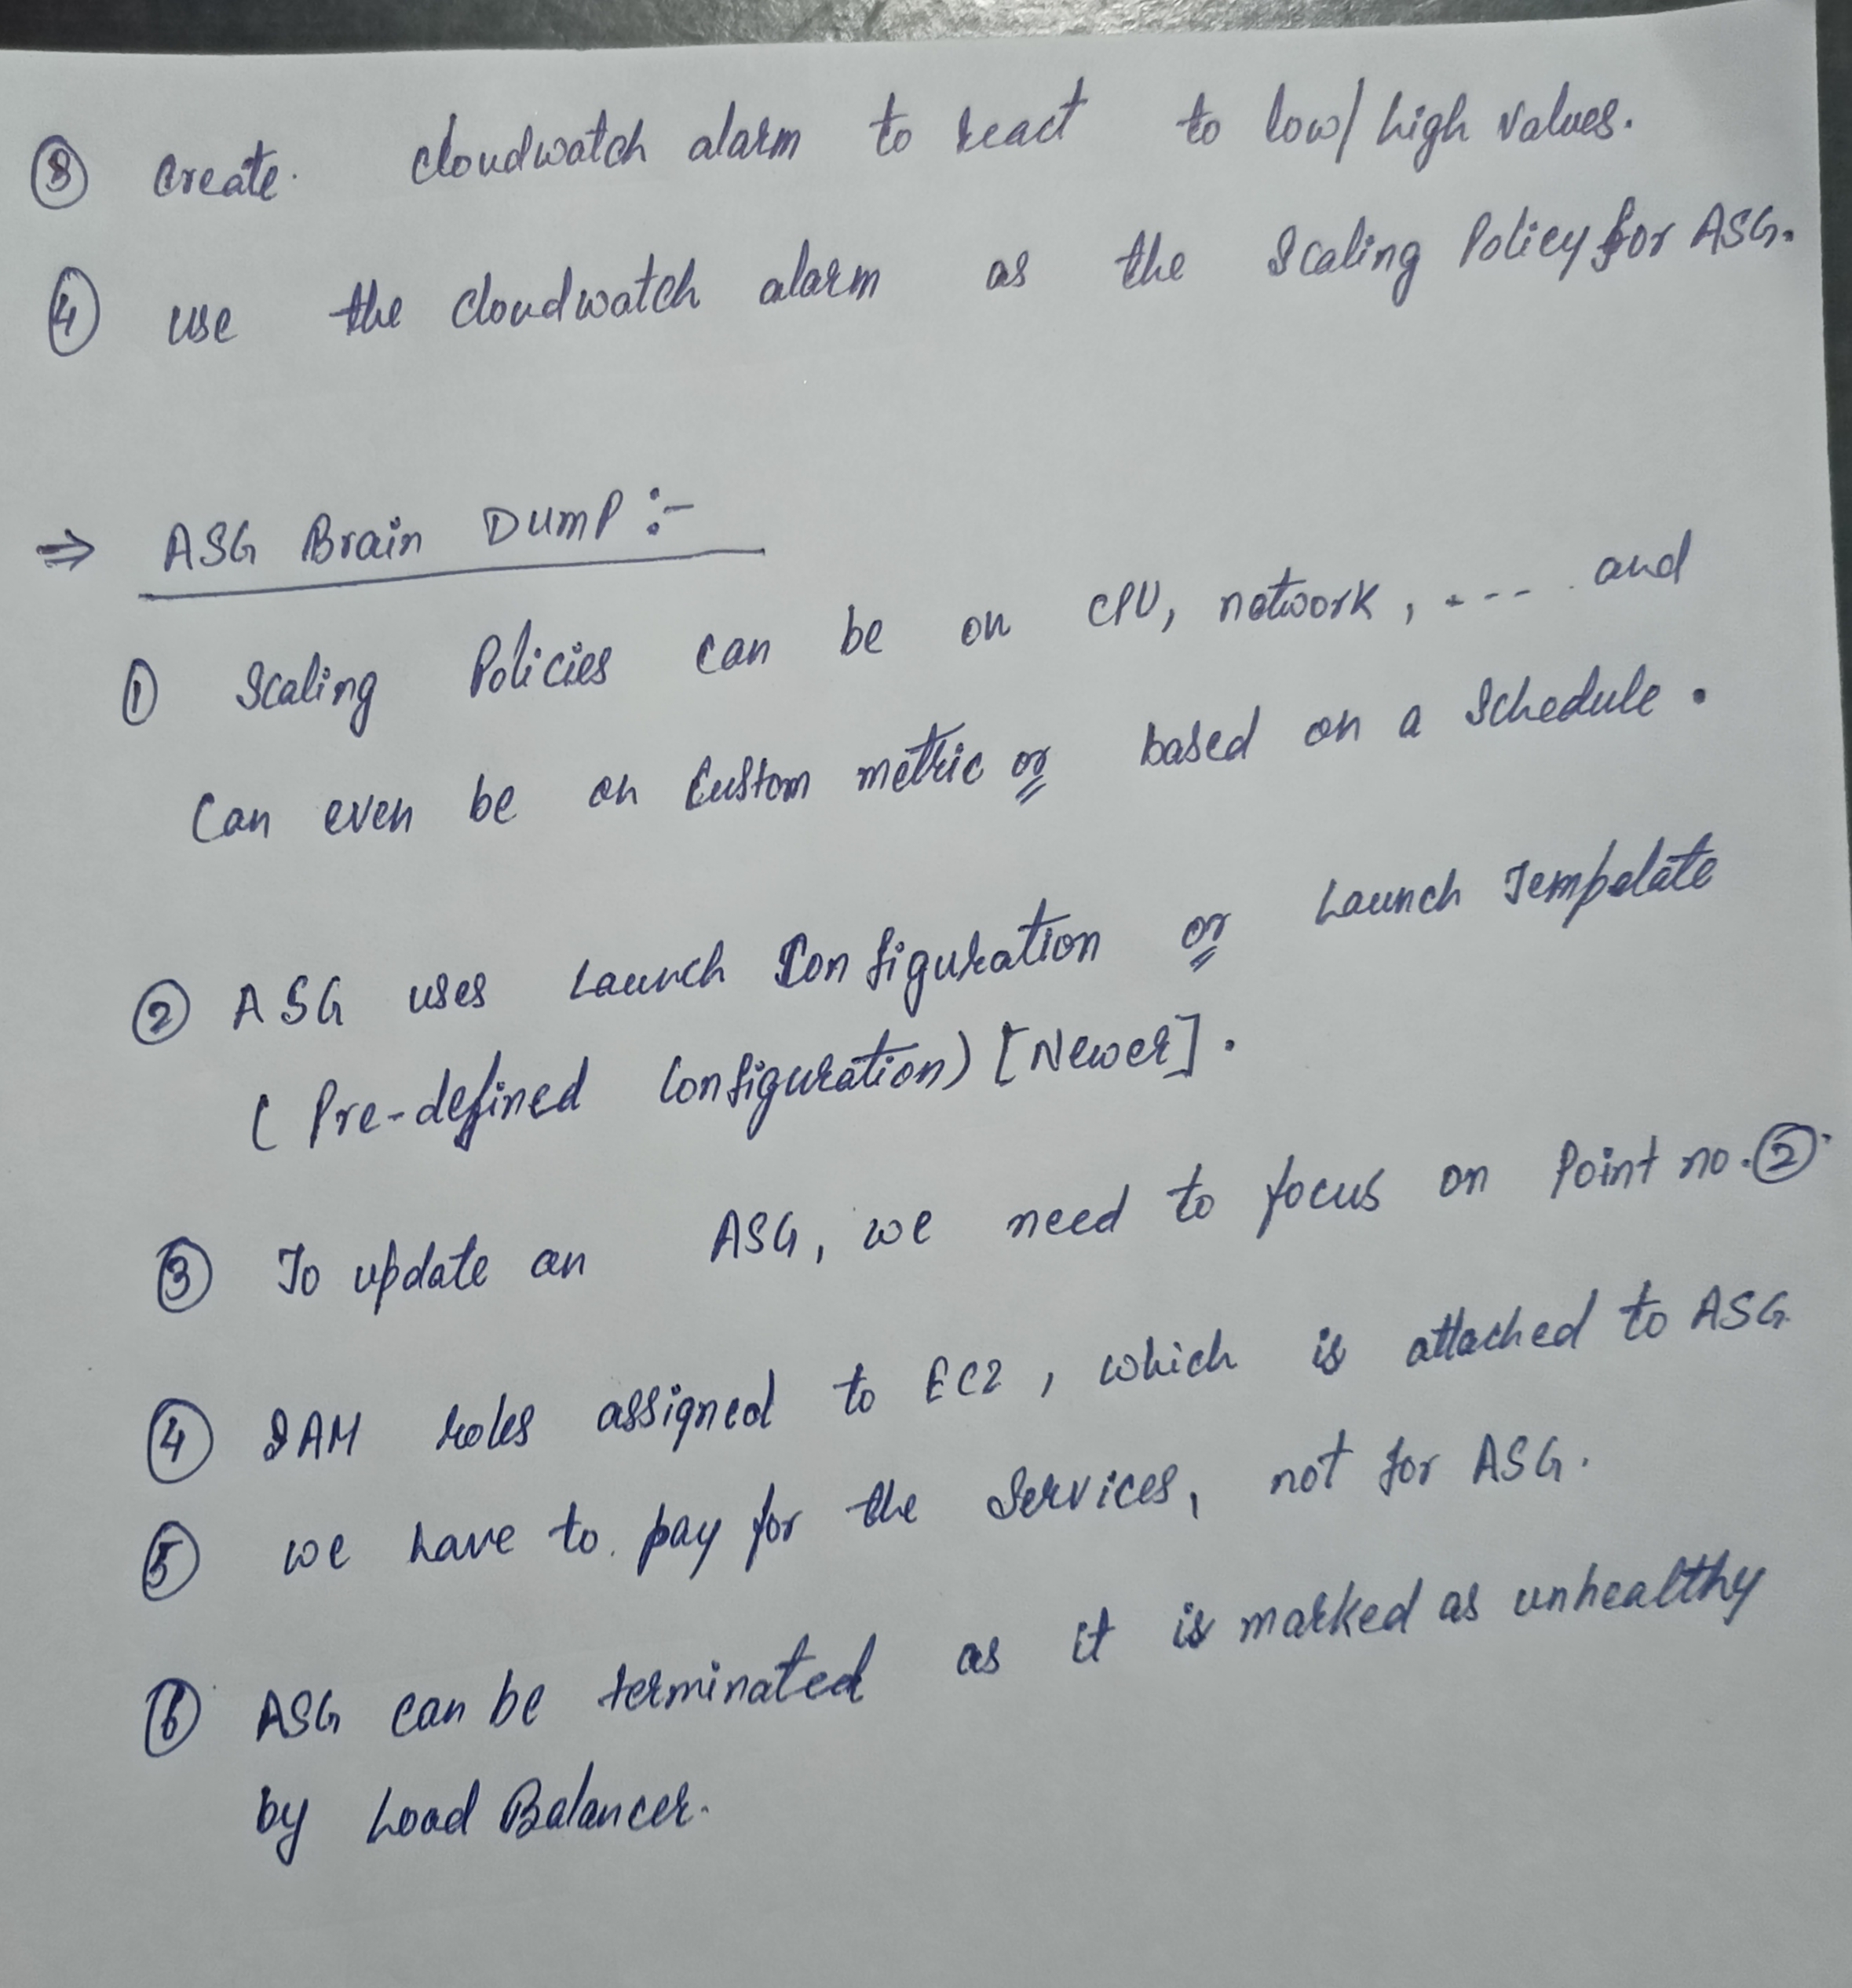 ③ Create. cloudwatch alarm to react to low/high values.
④ use the cloudwatch alarm as the Scaling Policy for ASG.
⇒ ASG Brain Dump :-
① Scaling Policies can be on CPU, network, ---- and
Can even be on Custom metric or based on a Schedule.
② ASG uses Launch Configuration or Launch Tempelate
(Pre-defined Configuration) [Newer].
③ To update an ASG, we need to focus on Point no. ②.
④ IAM roles assigned to EC2, which is attached to ASG
⑤ we have to pay for the Services, not for ASG.
⑥ ASG can be terminated as it is marked as unhealthy
by Load Balancer.